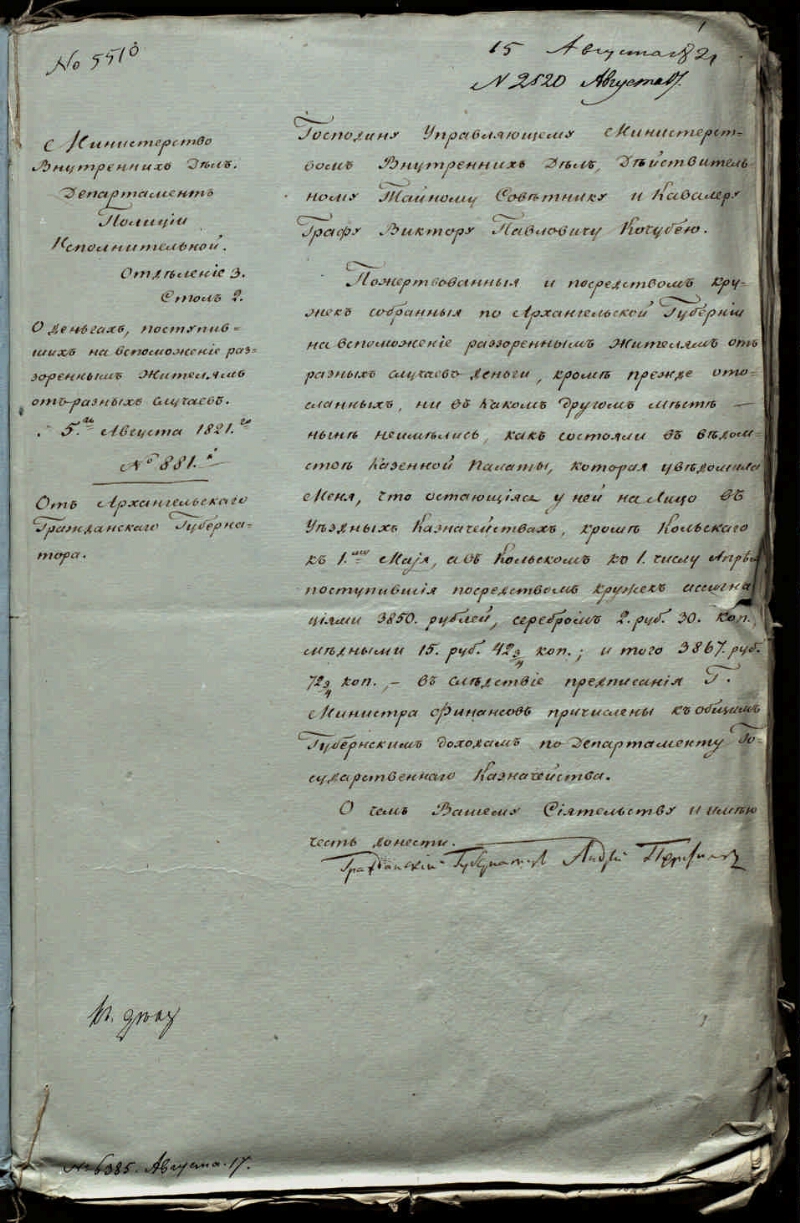 № 5510
15 Августа 1821
№ 2820 Августа 17.
Министерство
Внутреннихъ Дѣлъ.
Департаментъ
Полиціи
Исполнительной.
Отдѣленіе 3.
Столъ 2.
О деньгахъ, поступив=
шихъ на вспоможеніе раз=
зореннымъ жителямъ
отъ разныхъ случаевъ.
5.го Августа 1821.го
№ 881.
Отъ Архангельскаго
Гражданскаго Губерна=
тора.
Господину Управляющему Министерст=
вомъ Внутреннихъ Дѣлъ, Дѣйствитель=
ному Тайному Совѣтнику и Кавалеру
Графу Виктору Павловичу Кочубею.
Пожертвованныя и посредствомъ кру=
жекъ собранныя по Архангельской Губерніи
на вспоможеніе раззореннымъ жителямъ отъ
разныхъ случаевъ деньги, кромѣ прежде ото=
сланныхъ, ни въ какомъ другомъ мѣстѣ —
нынѣ неимѣлись, какъ состояли въ вѣдом=
ствѣ Казенной Палаты, которая увѣдомила
меня, что остающіяся у ней на лицо въ
Уѣздныхъ Казначействахъ, кромѣ Кольскаго
къ 1. Мая, а въ Кольскомъ къ 1. числу Апрѣля
поступившія посредствомъ кружекъ ассигна
ціями 3850. рублей, серебромъ 2. руб. 30. коп.,
мѣдными 15. руб. 42¾ коп.; и того 3867. руб.
72¾ коп., – въ слѣдствіе предписанія Г.
Министра Финансовъ причислены къ общимъ
Губернскимъ доходамъ по Департаменту Го=
сударственнаго Казначейства.
О чемъ Вашему Сіятельству и имѣю
честь донести.
Гражданскій Губернаторъ Андрей Перфильев
№ 6385. Августа 17.